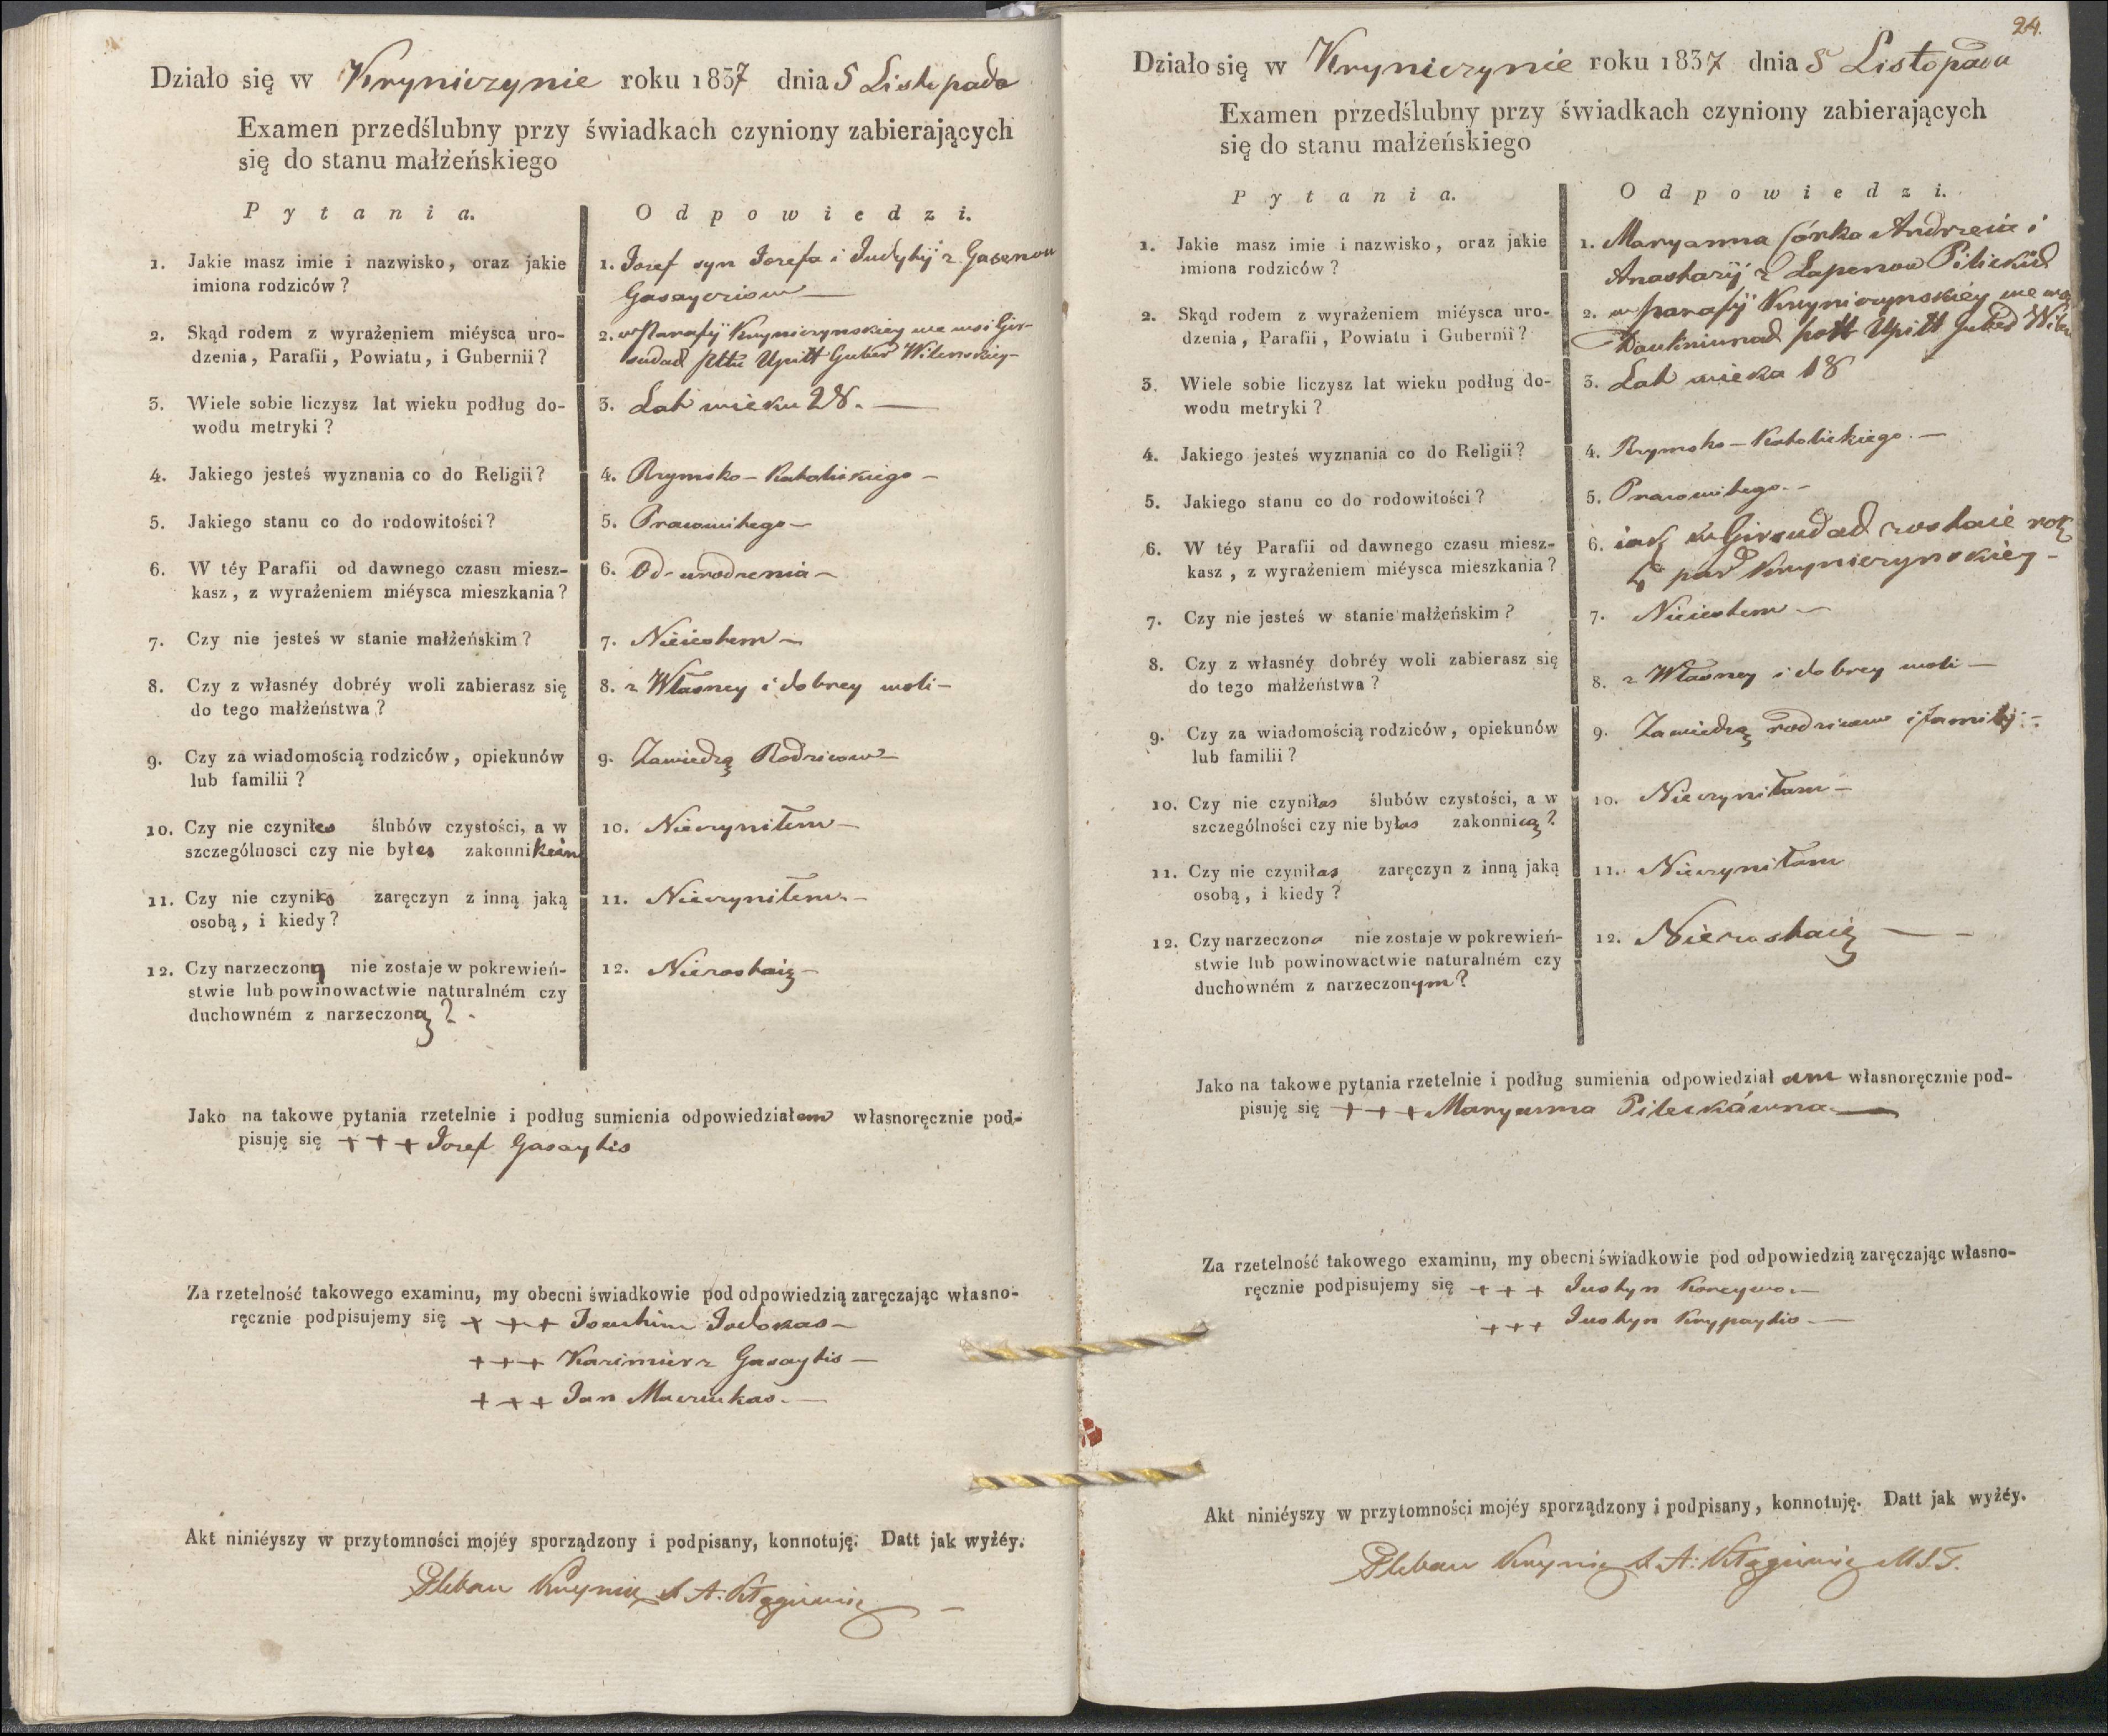 Działo się w Kryniczynie roku 1837 dnia 5 Listopada
Examen przedślubny przy świadkach czyniony zabierających
się do stanu małżeńskiego
Pytania.
Odpowiedzi.
1. Jakie masz imie i nazwisko, oraz jakie
imiona rodziców?
1. Jozef syn Jozefa i Judyty z
Gasayciow
2. Skąd rodem z wyrażeniem miéysca uro-
dzenia, Parafii, Powiatu, i Gubernii?
2. w Parafij Kryniczynskiey we wsi Gir-
sudach Pttu Upitt Guber Wilenskiey
3. Wiele sobie liczysz lat wieku podług do-
wodu metryki?
3. Lat wieku 28.
4. Jakiego jesteś wyznania co do Religii?
4. Rzymsko-Katolickiego
5. Jakiego stanu co do rodowitości?
5. Prawowitego
6. W téy Parafii od dawnego czasu miesz-
kasz, z wyrażeniem miéysca mieszkania?
6. Od urodzenia
7. Czy nie jesteś w stanie małżeńskim?
7. Nieiestem
8. Czy z własnéy dobréy woli zabierasz się
do tego małżeństwa?
8. z Własney i dobrey woli
9. Czy za wiadomością rodziców, opiekunów
lub familii?
9. Zawiedzą Rodzicow
10. Czy nie czyniłes ślubów czystości, a w
szczególnosci czy nie byłes zakonnikiem
10. Nieczyniłem
11. Czy nie czyniłes zaręczyn z inną jaką
osobą, i kiedy?
11. Nieczyniłem
12. Czy narzeczony nie zostaje w pokrewień-
stwie lub powinowactwie naturalném czy
duchowném z narzeczoną?
12. Niezostaię
Jako na takowe pytania rzetelnie i podług sumienia odpowiedziałem własnoręcznie pod-
pisuję się +++ Jozef Gasaytis
Za rzetelność takowego examinu, my obecni świadkowie pod odpowiedzią zaręczając własno-
ręcznie podpisujemy się +++ Joachim
+++ Kazimierz Gasaytis
+++ Jan
Akt niniéyszy w przytomności mojéy sporządzony i podpisany, konnotuję. Datt jak wyżéy.
Pleban Krynic X A.
24.
Działo się w Kryniczynie roku 1837 dnia 5 Listopada
Examen przedślubny przy świadkach czyniony zabierających
się do stanu małżeńskiego
Pytania.
Odpowiedzi.
1. Jakie masz imie i nazwisko, oraz jakie
imiona rodziców?
1. Maryanna Córka Andrzeia i
Anastazij z Łapenow
2. Skąd rodem z wyrażeniem miéysca uro-
dzenia, Parafii, Powiatu i Gubernii?
2. w parafij Kryniczynskiey we wsi
pott Upitt Guber Wilen
3. Wiele sobie liczysz lat wieku podług do-
wodu metryki?
3. Lat wieka 18
4. Jakiego jesteś wyznania co do Religii?
4. Rzymsko-Katolickiego.
5. Jakiego stanu co do rodowitości?
5. Prawowitego.
6. W téy Parafii od dawnego czasu miesz-
kasz, z wyrażeniem miéysca mieszkania?
6. iak w Girsudach zostaie rok
4 par Krynieczynskiey
7. Czy nie jesteś w stanie małżeńskim?
7. Nieiestem
8. Czy z własnéy dobréy woli zabierasz się
do tego małżeństwa?
8. z Własney i dobrey woli
9. Czy za wiadomością rodziców, opiekunów
lub familii?
9. Zawiedzą rodzicow i familij
10. Czy nie czyniłas ślubów czystości, a w
szczególności czy nie byłas zakonnicą?
10. Nieczyniłam
11. Czy nie czyniłas zaręczyn z inną jaką
osobą, i kiedy?
11. Nieczyniłam
12. Czy narzeczona nie zostaje w pokrewień-
stwie lub powinowactwie naturalném czy
duchowném z narzeczonym?
12. Niezostaię
Jako na takowe pytania rzetelnie i podług sumienia odpowiedziałam własnoręcznie pod-
pisuję się +++ Maryanna Pileckówna
Za rzetelność takowego examinu, my obecni świadkowie pod odpowiedzią zaręczając własno-
ręcznie podpisujemy się +++ Justyn Koreywo
+++ Justyn Krypaytis
Akt niniéyszy w przytomności mojéy sporządzony i podpisany, konnotuję. Datt jak wyżéy.
Pleban Krynic X A.